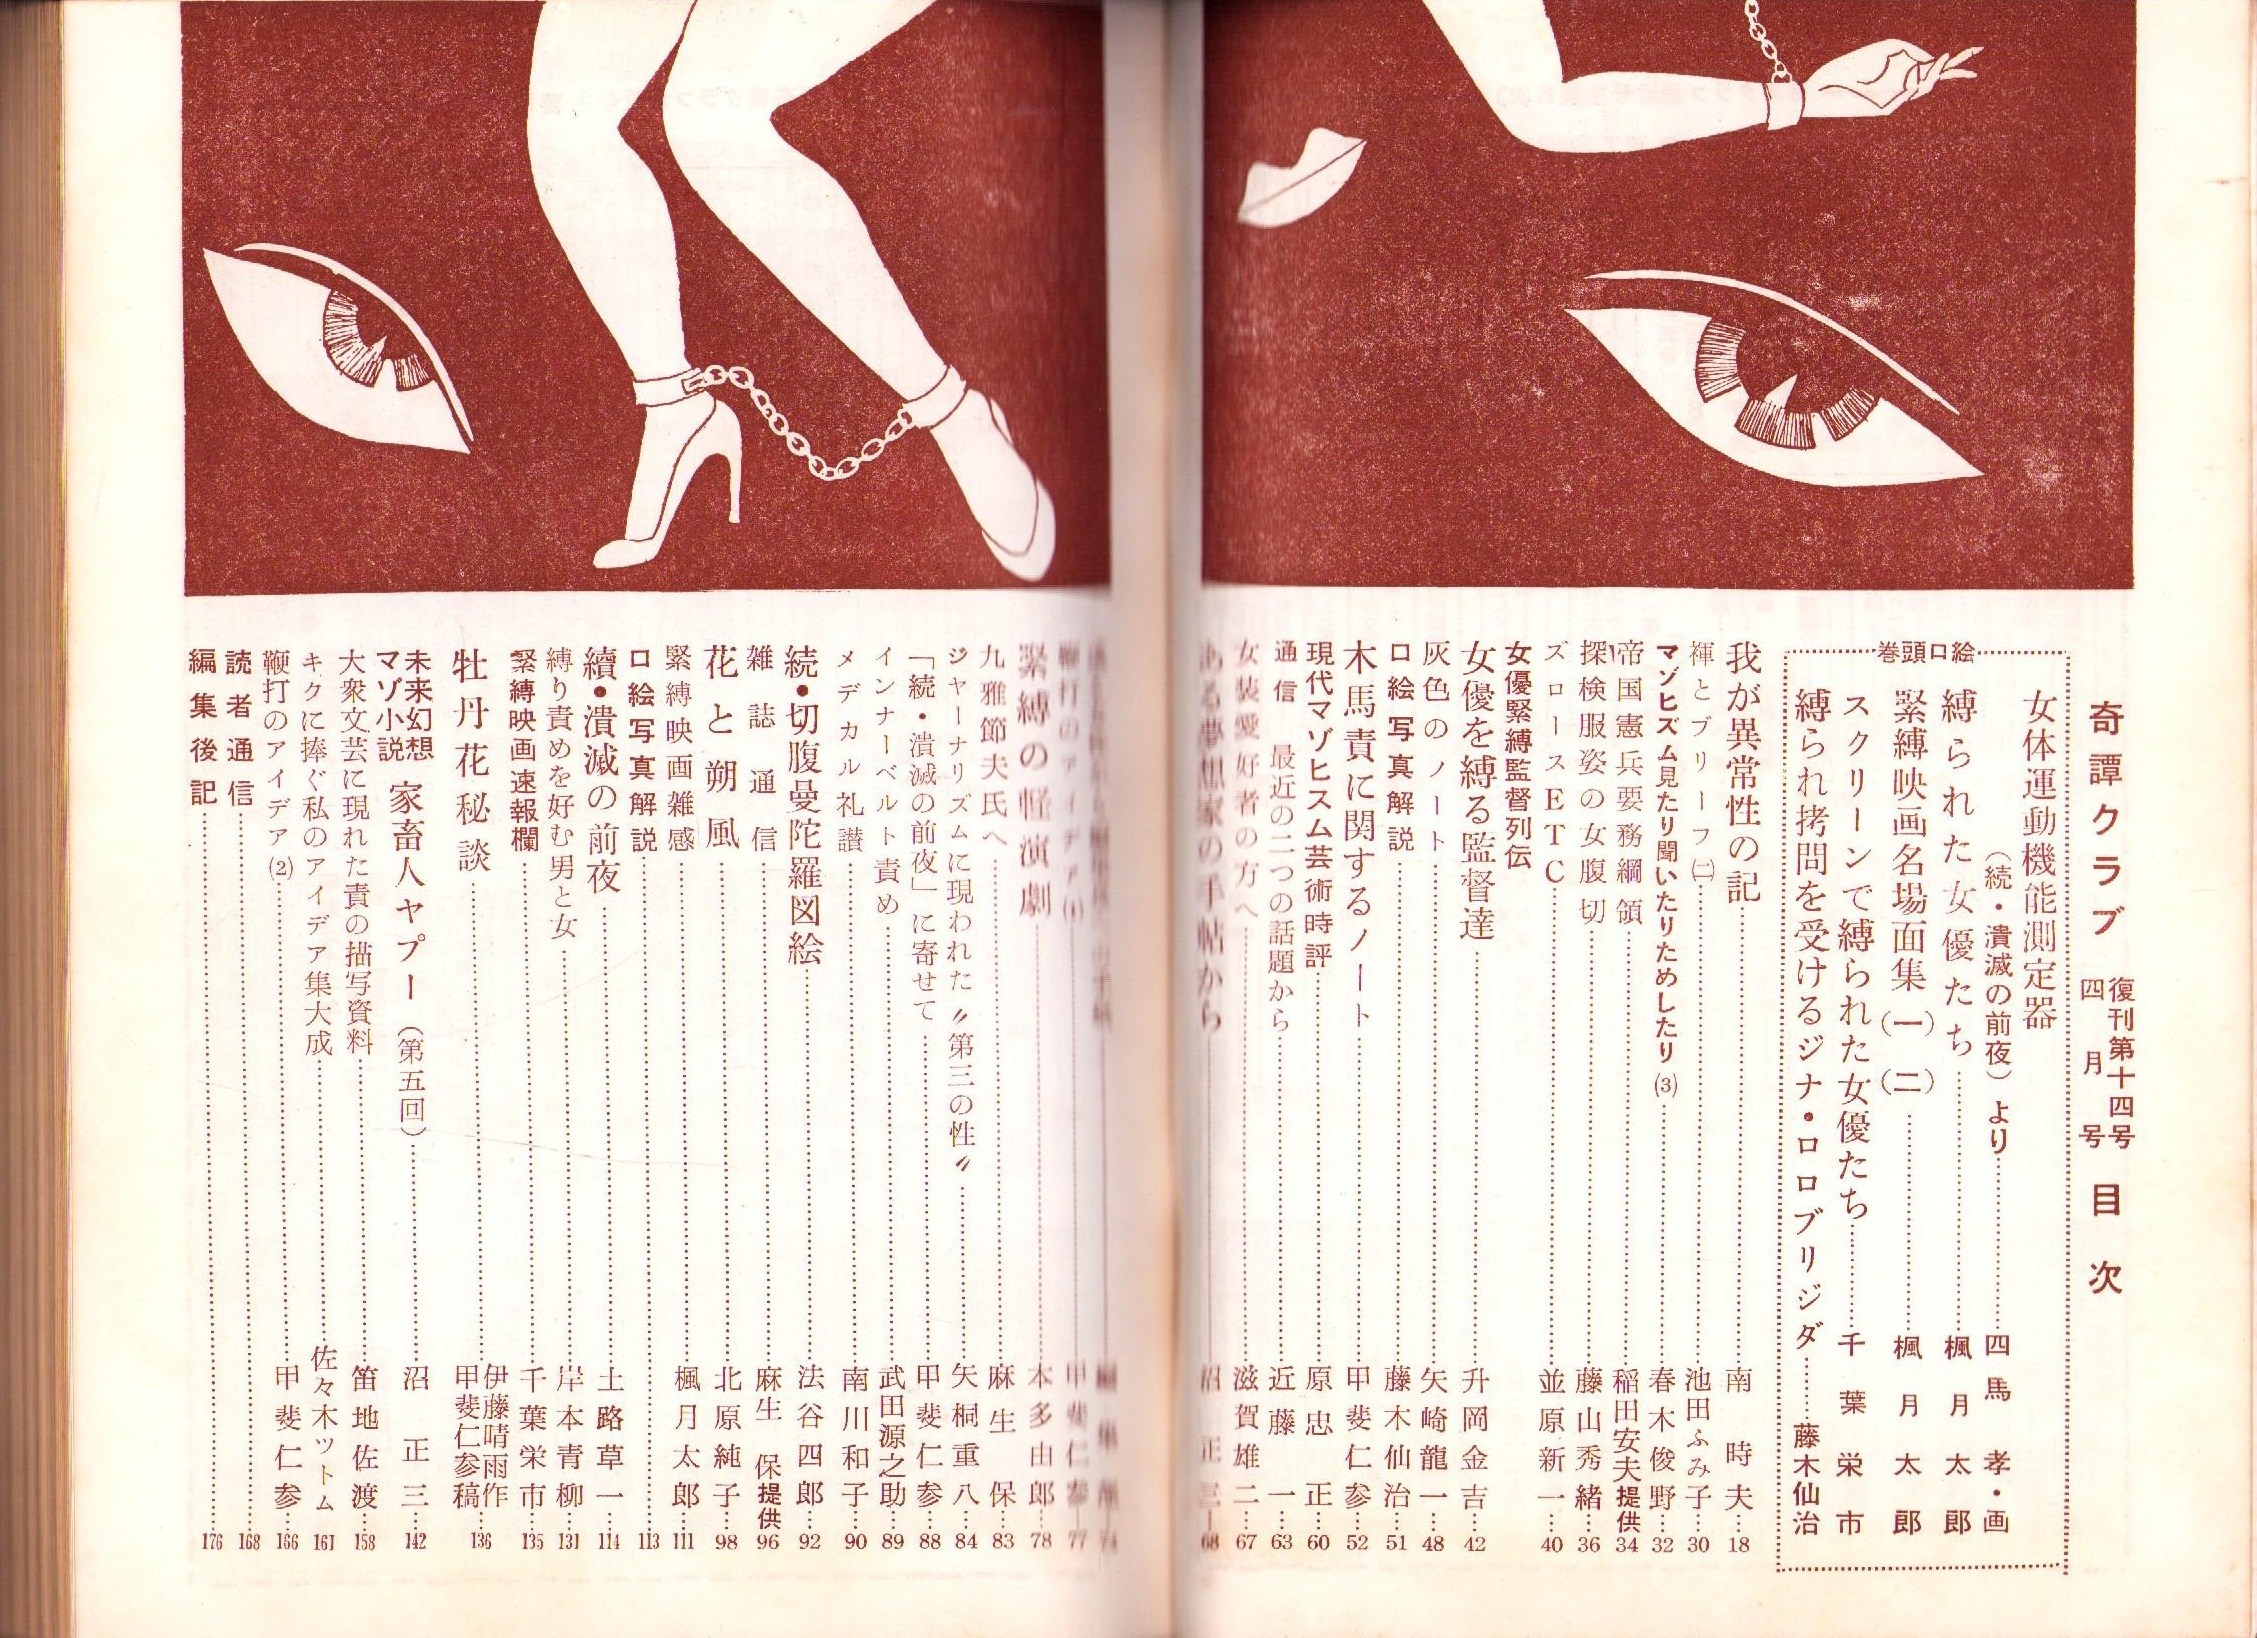 奇譚クラブ 復刊第十四号 四月号 目次
巻頭口絵
女体運動機能測定器
(続・潰滅の前夜)より…四馬孝・画
縛られた女優たち…楓月太郎
緊縛映画名場面集(一)(二)…楓月太郎
スクリーンで縛られた女優たち…千葉栄市
縛られ拷問を受けるジナ・ロロブリジダ…藤木仙治
我が異常性の記…南時夫…18
褌とブリーフ(二)…池田ふみ子…30
マゾヒズム見たり聞いたりためしたり(3)…春木俊野…32
帝国憲兵要務綱領…稲田安夫提供…34
探検服姿の女腹切…藤山秀緒…36
ズロースETC…並原新一…40
女優緊縛監督列伝
女優を縛る監督達…升岡金吉…42
灰色のノート…矢崎龍一…48
口絵写真解説…藤木仙治…51
木馬責に関するノート…甲斐仁参…52
現代マゾヒスム芸術時評…原忠正…60
通信 最近の二つの話題から…近藤一…63
女装愛好者の方へ…滋賀雄二…67
ある夢想家の手帖から…沼正三…68
鞭打のアイデア(1)…甲斐仁参…77
緊縛の軽演劇…本多由郎…78
九雅節夫氏へ…麻生保…83
ジャーナリズムに現われた〃第三の性〃…矢桐重八…84
「続・潰滅の前夜」に寄せて…甲斐仁参…88
インナーベルト責め…武田源之助…89
メデカル礼讃…南川和子…90
続・切腹曼陀羅図絵…法谷四郎…92
雑誌通信…麻生保提供…96
花と朔風…北原純子…98
緊縛映画雑感…楓月太郎…111
口絵写真解説…113
續・潰滅の前夜…土路草一…114
縛り責めを好む男と女…岸本青柳…131
緊縛映画速報欄…千葉栄市…135
牡丹花秘談…伊藤晴雨作 甲斐仁参稿…136
未来幻想マゾ小説 家畜人ヤプー(第五回)…沼正三…142
大衆文芸に現れた責の描写資料…笛地佐渡…158
キクに捧ぐ私のアイデア集大成…佐々木ツトム…161
鞭打のアイデア(2)…甲斐仁参…166
読者通信…168
編集後記…176